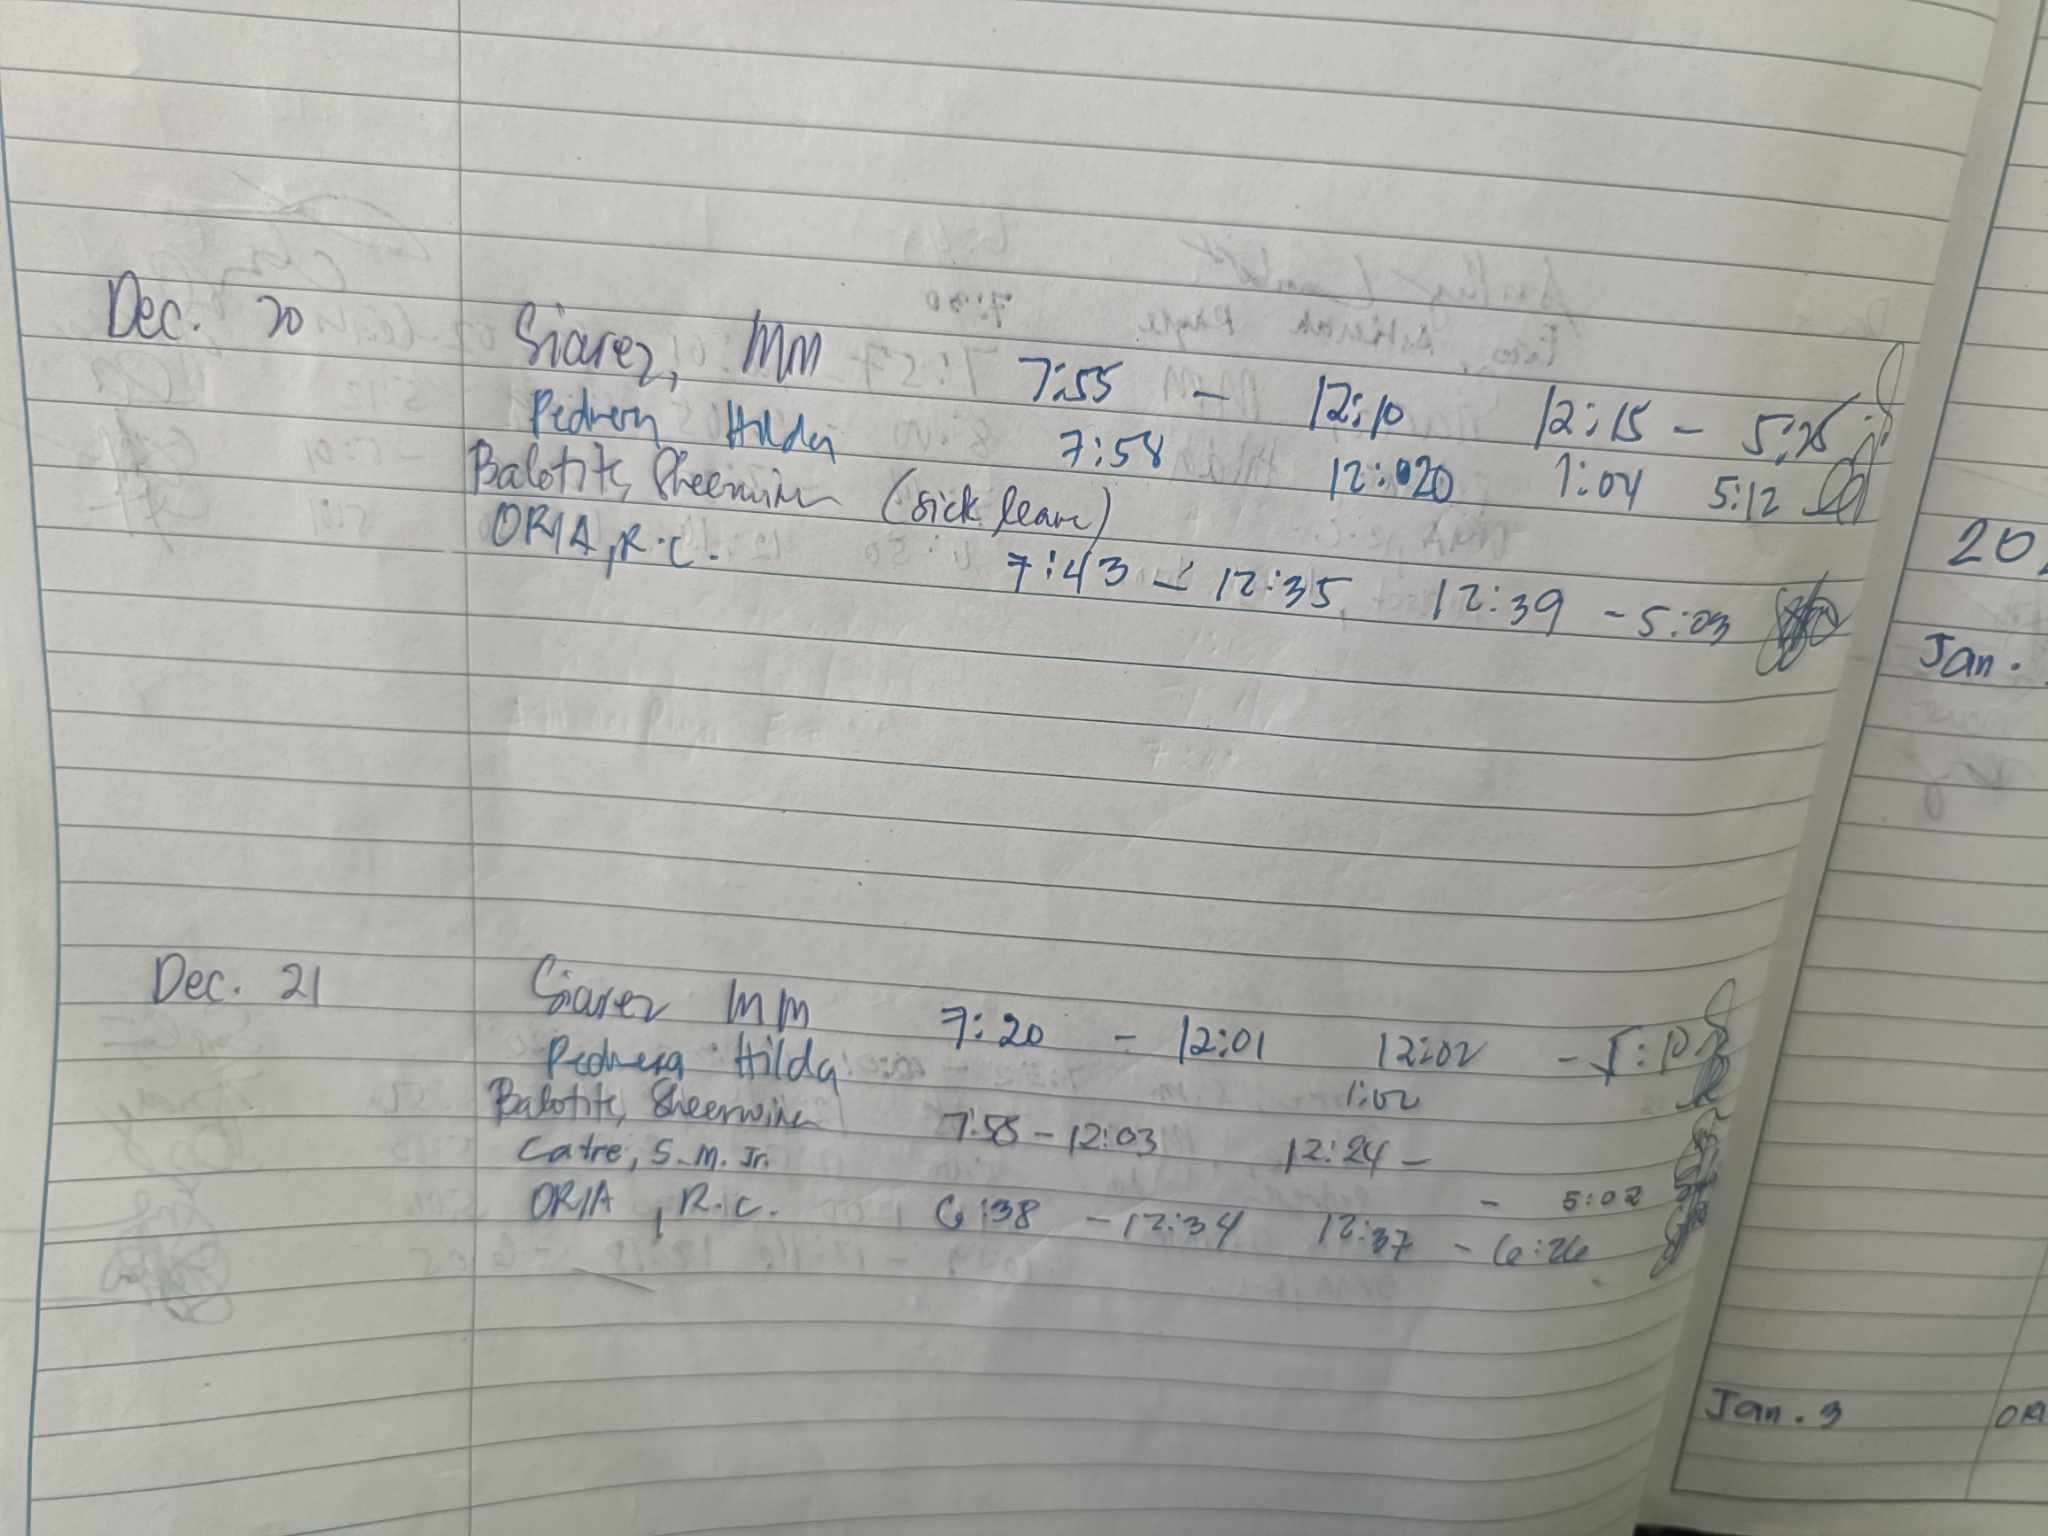 Dec. 20 Siarez, MM 7:55 - 12:10 12:15 - 5:25
Pedrera Hilda 7:58 12:020 1:04 5:12
Balotite, Sheerwina (sick leave)
ORIA, R.C. 7:43 - 12:35 12:39 - 5:03
Dec. 21 Siarez MM 7:20 - 12:01 12:02 - 5:10
Pedrera Hilda 1:02
Balotite, Sheerwina 7:55 - 12:03 12:24 -
Catre, S.M. Jr. - 5:02
ORIA, R.C. 6:38 - 12:34 12:37 - 6:26
20
Jan.
Jan. 3